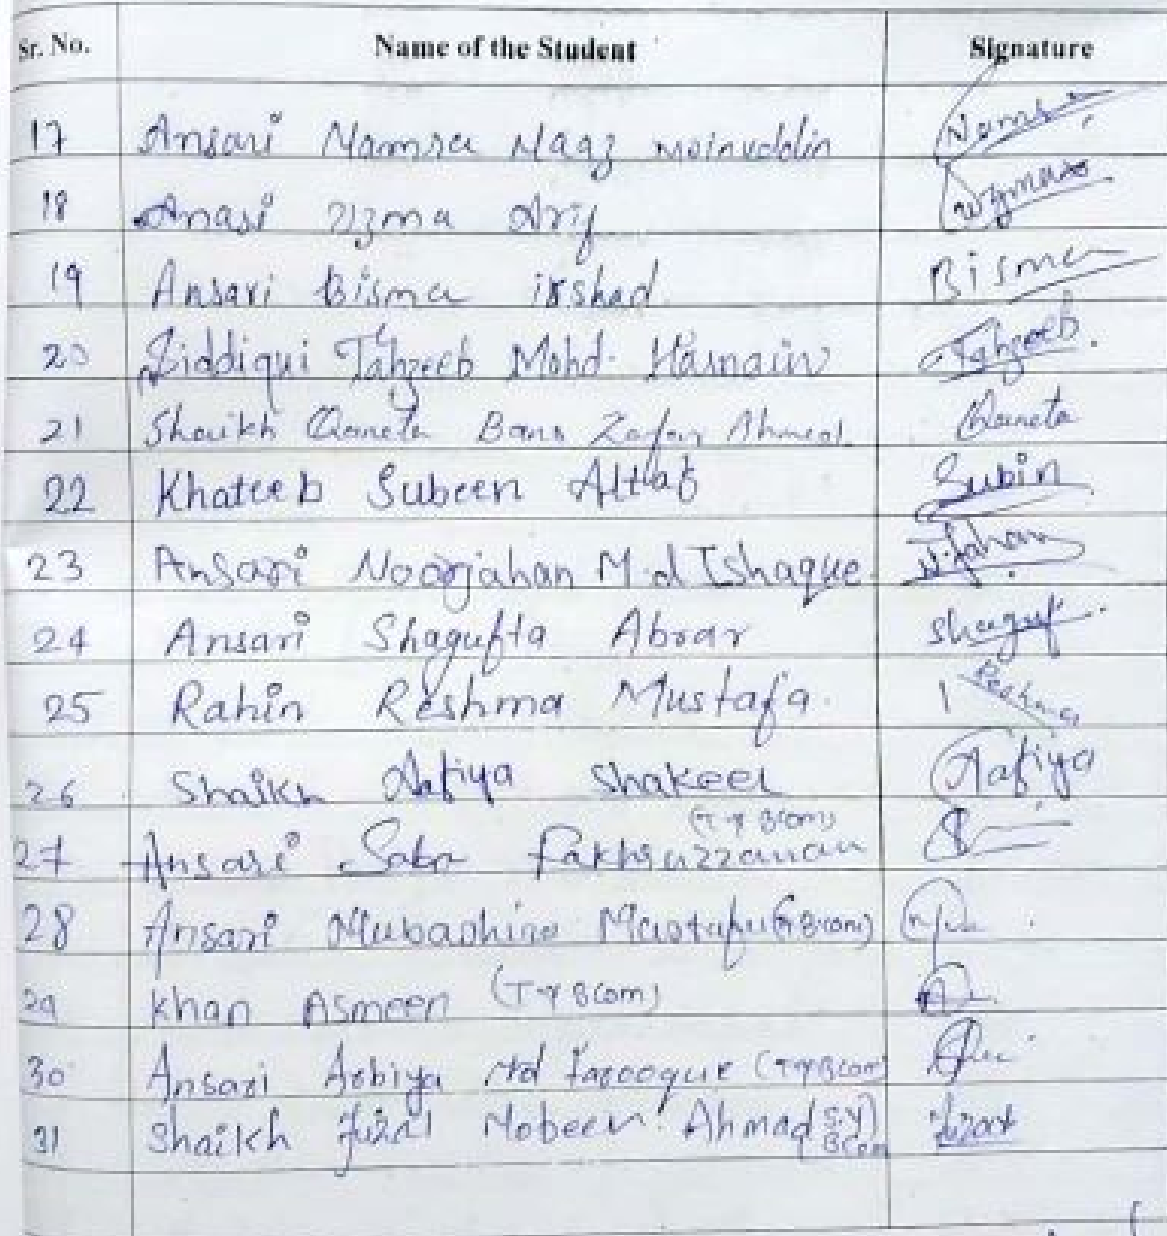 Sr. No. Name of the Student Signature
17 Ansari Namra Maaz moinuddin Namra
18 Anasi Uzma Arif Uzma
19 Ansari Bisma irshad Bisma
20 Siddiqui Tahzeeb Mohd. Hasnain Tahzeeb.
21 Shaikh Qaneta Bano Zafar Ahmed. Qaneta
22 Khateeb Subeen Altaf Subin
23 Ansari Noorjahan M.d Ishaque N.Jahan
24 Ansari Shagufta Abrar Shaguf
25 Rahin Reshma Mustafa. Reshma
26 Shaikh Aafiya Shakeel Aafiya
(T.Y BCom)
27 Ansari Saba Fakhruzzaman
28 Ansari Mubashira Mustafa
29 Khan Asmeen (T-Y BCom)
30 Ansari Arbiya Md farooque (TYBCom)
31 Shaikh Mobeen Ahmad (S.Y)
BCom